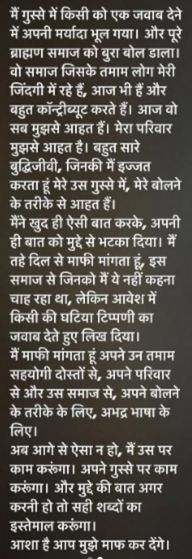 मैं गुस्से में किसी को एक जवाब देने
में अपनी मर्यादा भूल गया। और पूरे
ब्राह्मण समाज को बुरा बोल डाला।
वो समाज जिसके तमाम लोग मेरी
जिंदगी में रहे हैं, आज भी हैं और
बहुत कॉन्ट्रीब्यूट करते हैं। आज वो
सब मुझसे आहत हैं। मेरा परिवार
मुझसे आहत है। बहुत सारे
बुद्धिजीवी, जिनकी मैं इज्जत
करता हूं मेरे उस गुस्से में, मेरे बोलने
के तरीके से आहत हैं।
मैंने खुद ही ऐसी बात करके, अपनी
ही बात को मुद्दे से भटका दिया। मैं
तहे दिल से माफी मांगता हूं, इस
समाज से जिनको मैं ये नहीं कहना
चाह रहा था, लेकिन आवेश में
किसी की घटिया टिप्पणी का
जवाब देते हुए लिख दिया।
मैं माफी मांगता हूं अपने उन तमाम
सहयोगी दोस्तों से, अपने परिवार
से और उस समाज से, अपने बोलने
के तरीके के लिए, अभद्र भाषा के
लिए।
अब आगे से ऐसा न हो, मैं उस पर
काम करूंगा। अपने गुस्से पर काम
करूंगा। और मुद्दे की बात अगर
करनी हो तो सही शब्दों का
इस्तेमाल करूंगा।
आशा है आप मुझे माफ कर देंगे।